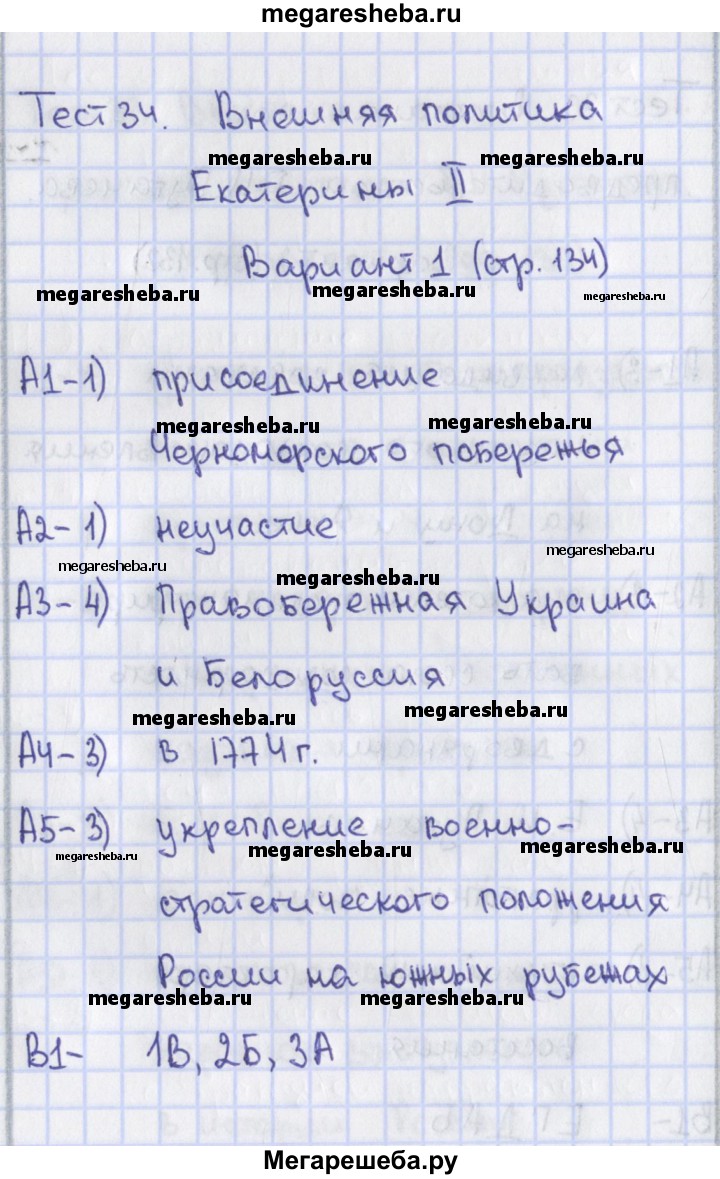 megaresheba.ru
Тест 34. Внешняя политика
megaresheba.ru megaresheba.ru
Екатерины II
Вариант 1 (стр. 134)
megaresheba.ru megaresheba.ru megaresheba.ru
А1-1) присоединение
megaresheba.ru megaresheba.ru
Черноморского побережья
А2-1) неучастие
megaresheba.ru megaresheba.ru
megaresheba.ru
А3-4) Правобережная Украина
и Белоруссия
megaresheba.ru megaresheba.ru
А4-3) в 1774 г.
А5-3) укрепление военно-
megaresheba.ru megaresheba.ru megaresheba.ru
стратегического положения
России на южных рубежах
megaresheba.ru megaresheba.ru
В1- 1В, 2Б, 3А
Мегарешеба.ру